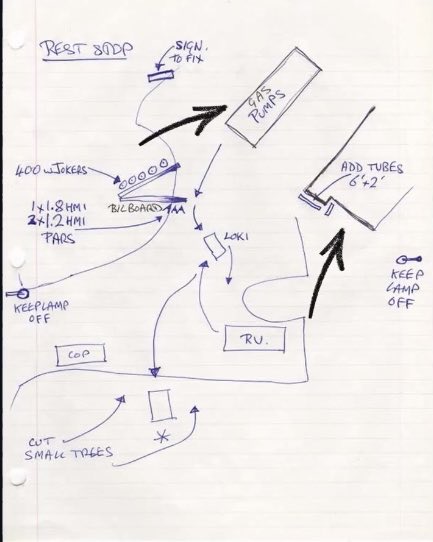 REST STOP
SIGN.
TO FIX
GAS
PUMPS
400W JOKERS
ADD TUBES
6'+2'
1x1.8 HMI
2x1.2 HMI
PARS
BILBOARD
LOKI
KEEP LAMP
OFF
KEEP
LAMP
OFF
R.V.
COP
CUT
SMALL TREES